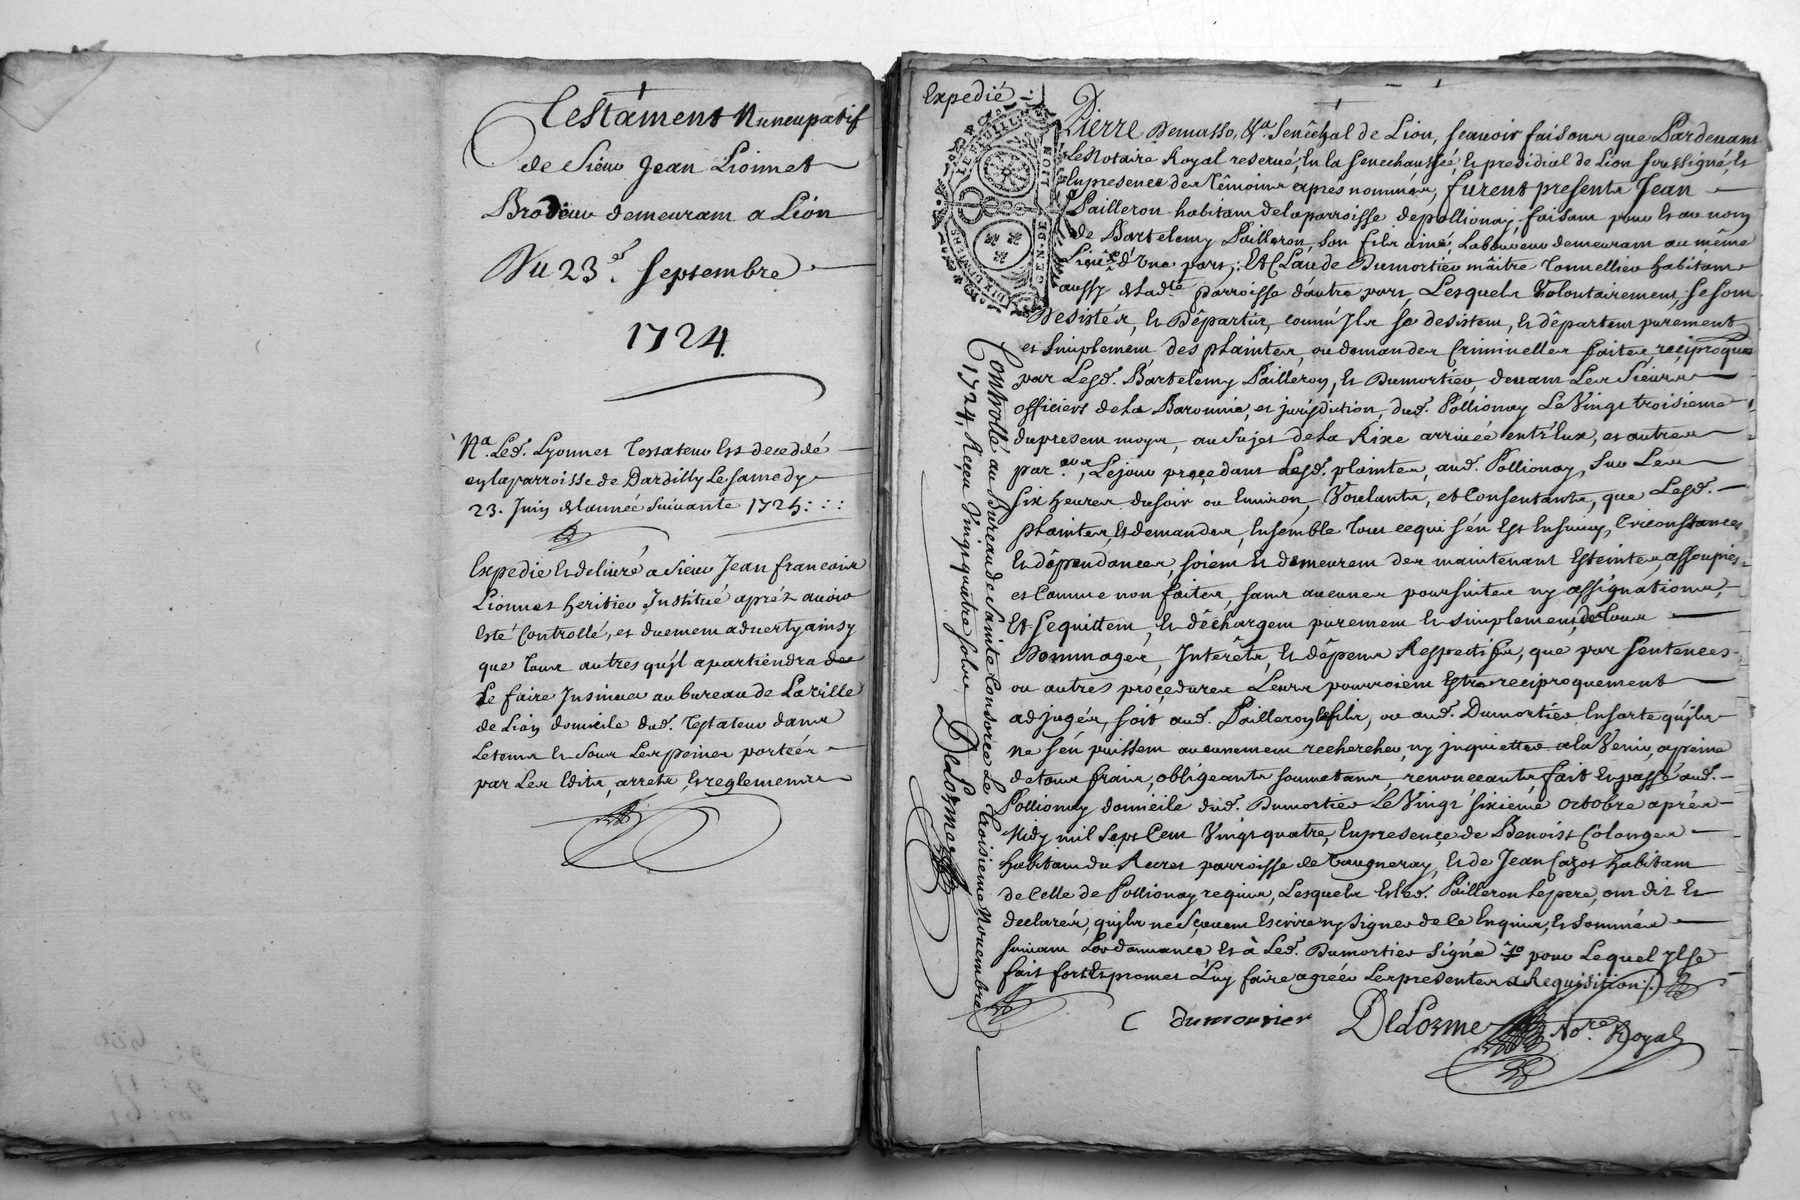 Testament Nuncupatif
de Sieur Jean Lionnet
Brodeur demeurant a Lion
Du 23e. Septembre
1724.
Na. Led. Lyonnet Testateur Est decedé
en la parroisse de Dardilly Le Samedy
23. Juin de l'année Suivante 1725
Expedié Et delivré a Sieur Jean francois
Lionnet heritier Institué aprés avoir
Esté Controllé, et duement adverty ainsy
que tous autres qu'jl apartiendra de
Le faire Jnsinuer au bureau de La ville
de Lion domicile dud. Testateur dans
Le tems Et Sous Les peines portées
par Les Edits, arrets, Et reglements
Expedié
Pierre Demasso, &a. Senéchal de Lion, sçavoir faisons que Pardevant
Le Notaire Royal reservé, En la Senechaussée, Et presidial de Lion soussigné, Et
En presence des Témoins aprés nommés, furent presents Jean
Pailleron habitant de la parroisse de pollionay, faisant pour Et au nom
de Bartelemy Pailleron, son fils ainé, Laboureur demeurant au même
Lieu d'Une part; Et Claude Dumortier mâitre Tonnellier habitant
aussy de lad.te parroisse d'autre part, Lesquels Volontairement, se sont
Desistés, Et Départis, comm'Jls se desistent, Et départent purement,
et simplement, des plaintes, ou demandes Criminelles faites, reciproques
par Lesd. Bartelemy Pailleron, Et Dumortier, devant Les Sieurs
officiers de La Baronnie, et jurisdiction, dud. Pollionay Le Vingt troisieme
du present moys, au Sujet de La Rixe arrivée entr'Eux, et autres
par, Le jour preçedant Lesd. plaintes, aud. Pollionay, Sur Les
Six heures du soir ou Environ, Voulants, et Consentants, que Lesd.
plaintes, Et demandes, Ensemble Tout ce qui s'én Est Ensuivy, Circonstances
Et dépendances, soient Et demeurent des maintenant Esteintes, assoupies
et Comme non faites, sans aucunes poursuites ny assignations,
Et Se quittent, Et déchargent purement Et simplement, de Tous
Dommages, Intérêts, Et dêpens Respectifs, que par sentences
ou autres proçedures Leurs pourroient Estre reciproquement
adjugés, soit aud. Pailleron le fils, ou aud. Dumortier, En sorte qu'jls
ne s'én puissent aucunement rechercher, ny jnquietter a la Venir, a peine
de tous frais, obligeants soumetants renonceants, fait Et passé aud.
Pollionay domicile dud. Dumortier Le Vingt sixieme octobre aprés
Midy mil Sept Cent Vingt quatre, En presence de Benoist Colonges
habitant du Recret parroisse de Vaugneray, Et de Jean Cazot habitant
de Celle de Pollionay requis, Lesquels Et led. Pailleron le pere, ont dit Et
declarés, qu'jls ne sçavent Escrire ny Signer de Ce Enquis, Et Sommés
suivant L'ordonnance, Et à Led. Dumortier Signé pour Lequel Jl se
fait fort Et promet Luy faire agréer Les presentes a Requisition
C dumortier DeLorme No.re Royal
Controllé au Bureau de Sainte Consorce Le Troisieme Novembre
1724, Reçeu Vingt quatre Solz
DeLorme